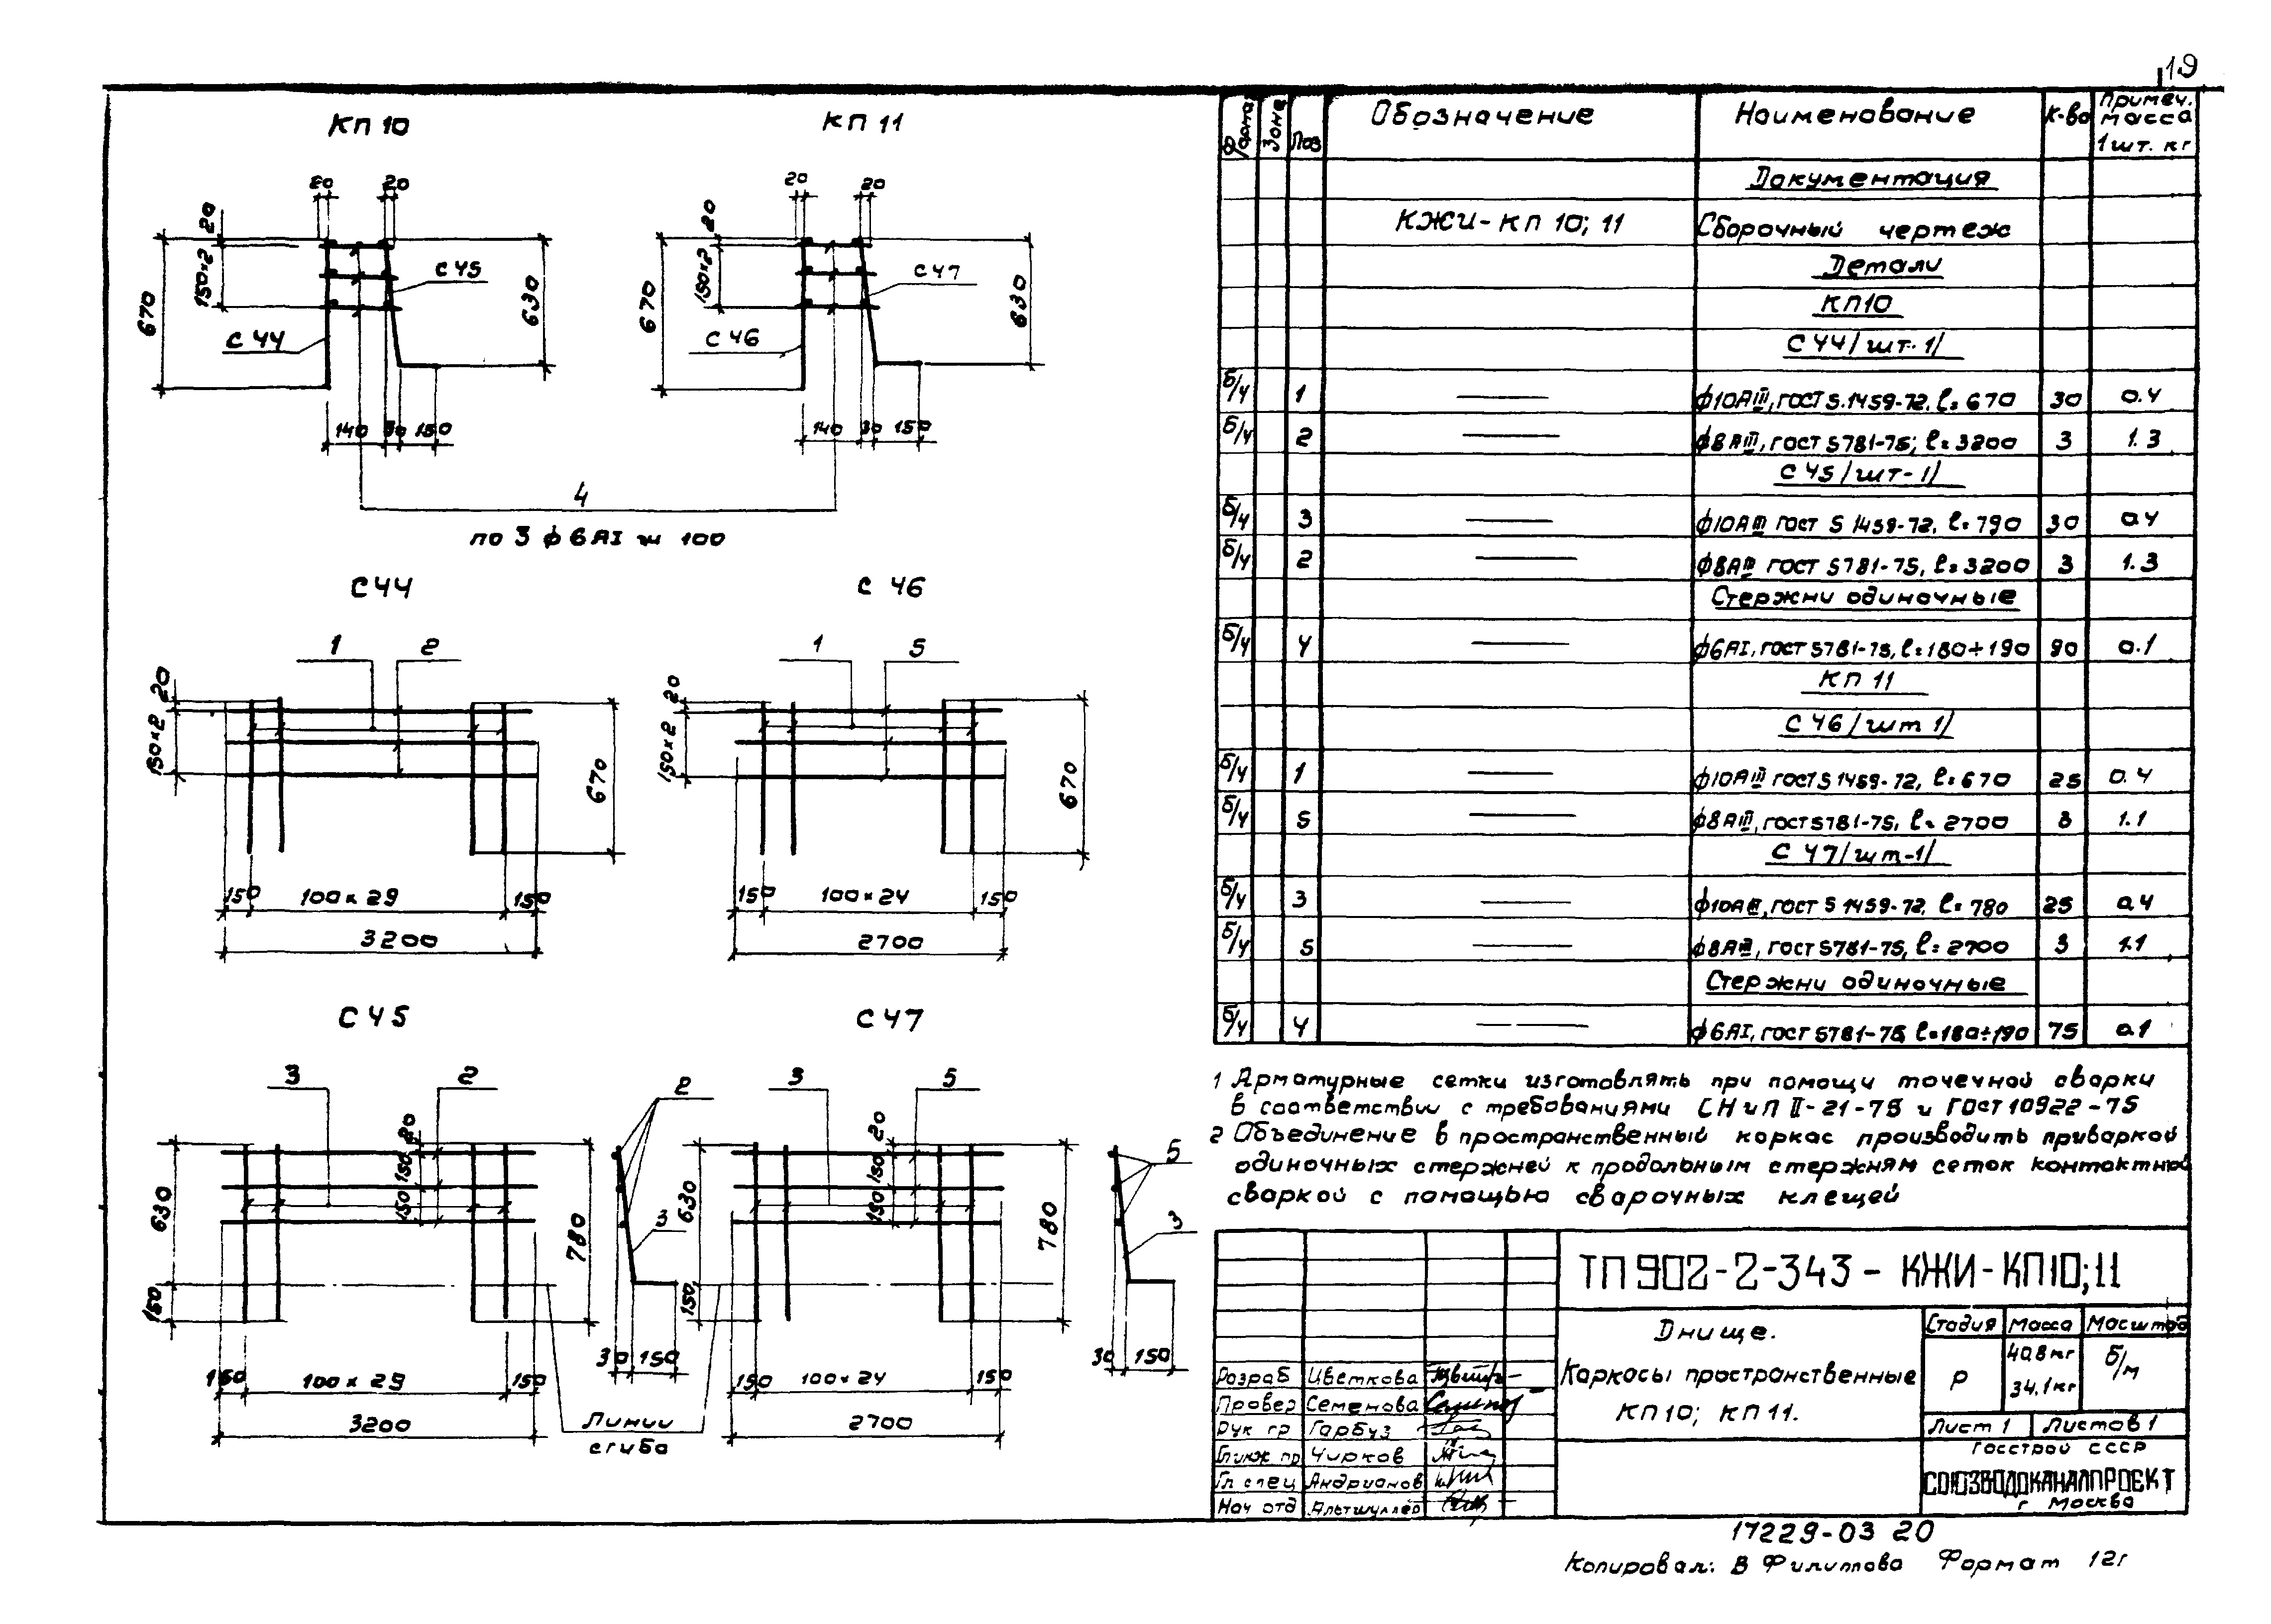 19
КП 10
КП 11
20
20
20
150×2
670
630
С 45
С 44
140
30
150
20
20
20
150×2
670
630
С 47
С 46
140
30
150
4
по 3 ф 6 АI ш 100
С 44
С 46
1
2
20
150×2
670
150
100×29
150
3200
1
5
20
150×2
670
150
100×24
150
2700
С 45
С 47
3
2
20
150
150
630
150
780
150
100×29
150
3200
2
3
30
150
Линии
сгиба
3
5
20
150
150
630
150
780
150
100×24
150
2700
5
3
30
150
Форма
Зона
Поз
Обозначение
Наименование
К-во
Примеч.
масса
1 шт. кг
Документация
КЖИ-КП 10; 11 Сборочный чертеж
Детали
КП10
С 44/шт. 1/
б/ч 1 ф10АIII, ГОСТ 5.1459-72, ℓ=670 30 0.4
б/ч 2 ф8АIII, ГОСТ 5781-75; ℓ=3200 3 1.3
С 45/шт-1/
б/ч 3 ф10АIII ГОСТ 5 1459-72, ℓ=790 30 0.4
б/ч 2 ф8АIII ГОСТ 5781-75, ℓ=3200 3 1.3
Стержни одиночные
б/ч 4 ф6АI, ГОСТ 5781-75, ℓ=180÷190 90 0.1
КП 11
С 46/шт 1/
б/ч 1 ф10АIII ГОСТ 5 1459-72, ℓ=670 25 0.4
б/ч 5 ф8АIII, ГОСТ 5781-75, ℓ=2700 3 1.1
С 47/шт-1/
б/ч 3 ф10АIII, ГОСТ 5 1459-72, ℓ=780 25 0.4
б/ч 5 ф8АIII, ГОСТ 5781-75, ℓ=2700 3 1.1
Стержни одиночные
б/ч 4 ф6АI, ГОСТ 5781-75 ℓ=180÷190 75 0.1
1 Арматурные сетки изготовлять при помощи точечной сварки
в соответствии с требованиями СНиП II-21-75 и ГОСТ 10922-75
2 Объединение в пространственный каркас производить приваркой
одиночных стержней к продольным стержням сеток контактной
сваркой с помощью сварочных клещей
ТП 902-2-343-КЖИ-КП10;11
Днище.
Каркасы пространственные
КП 10; КП 11.
Стадия Масса Масштаб
Р
40.8 кг
34.1 кг
б/м
Лист 1 Листов 1
Госстрой СССР
СОЮЗВОДОКАНАЛПРОЕКТ
г Москва
Разраб Цветкова
Провер Семенова
Рук гр Гарбуз
Гл инж пр Чирков
Гл спец Андрианов
Нач отд Альтшуллер
17229-03 20
Копировал: В Филиппова Формат 12г